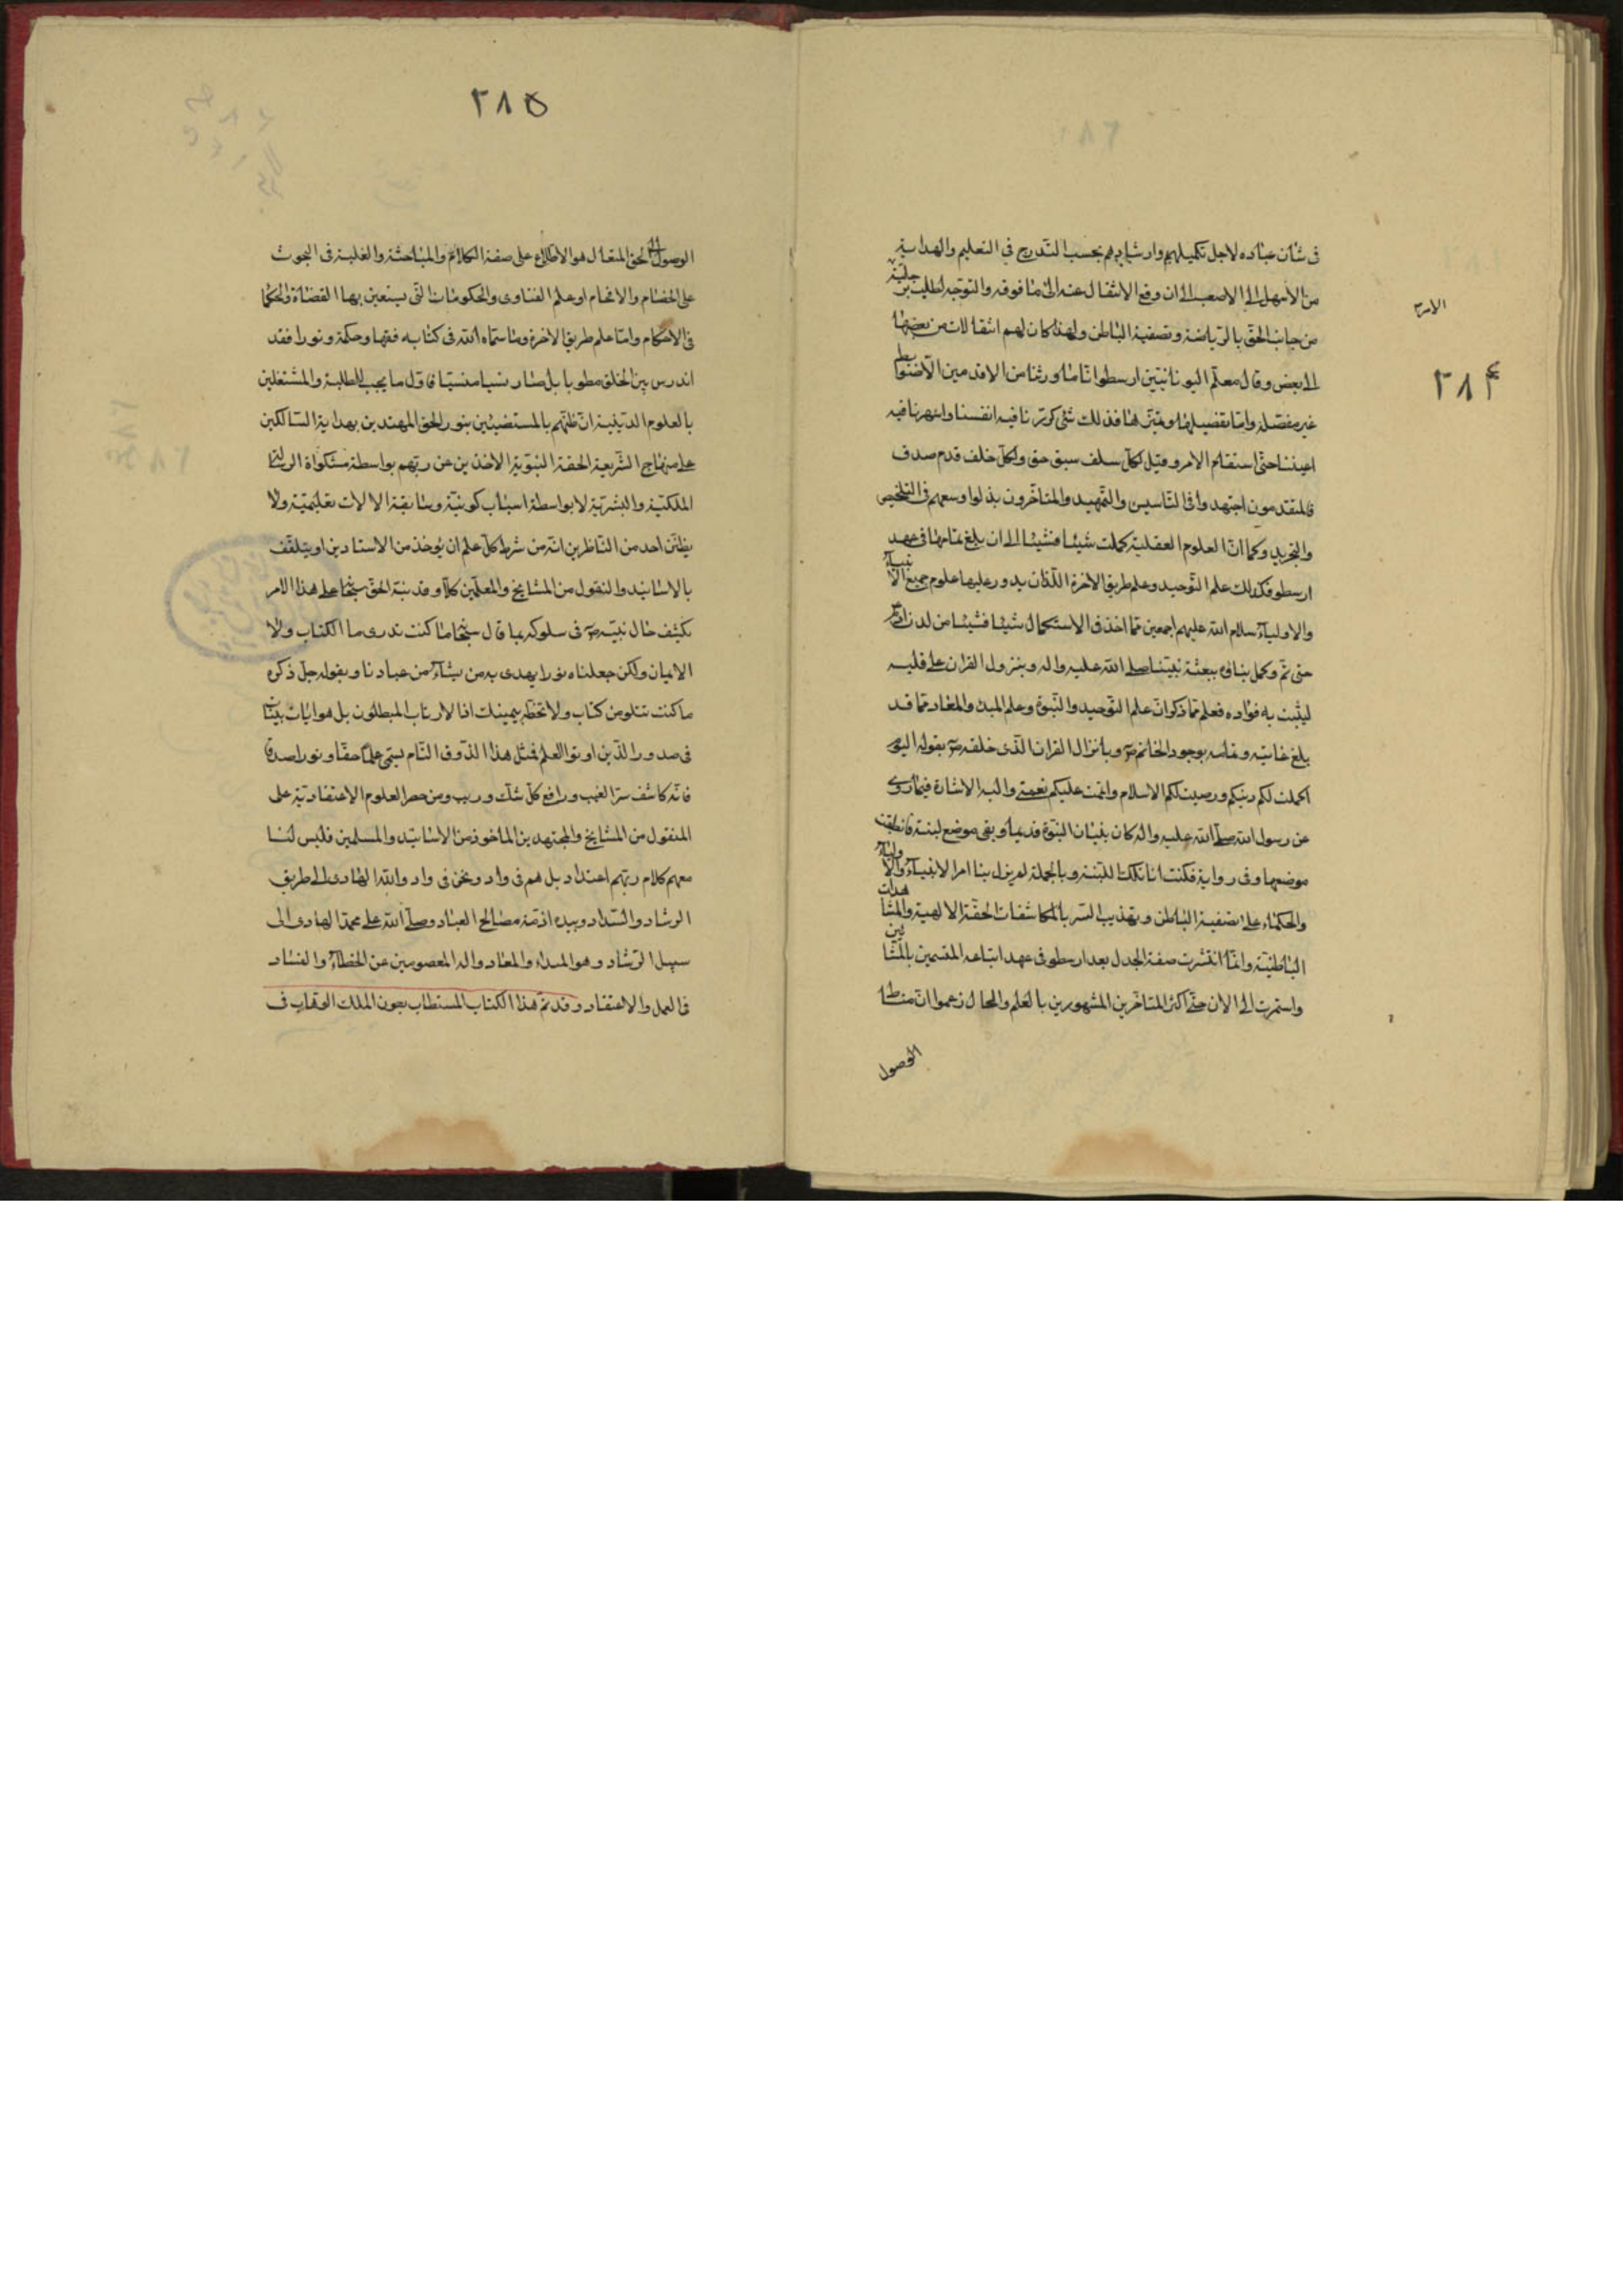 ٢٨۴
الامر
فى شان عباده لاجل تكميلهم وارشادهم بحسب التدرج فى التعليم والهداية
من الاسهل الى الاصعب الى ان وقع الانتقال عنه الى ما فوقه والتوجه لطلب
من جانب الحق بالرياضة وتصفية الباطن ولهذا كان لهم انتقالات من بعضها
الى بعض وقال معلم اليونانيين ارسطو انا ما ورثنا من الاقدمين الا ضوابط
غير مفصلة واما تفصيلها و فذلك شئ كررنا فيه انفسنا واسهرنا فيه
اعيننا حتى استقام الامر وقيل لكل سلف سبق حق ولكل خلف قدم صدق
فالمتقدمون اجتهدوا فى التاسيس والتمهيد والمتاخرون بذلوا وسعهم فى التلخيص
والتجريد وكما ان العلوم العقلية كملت شيئا فشيئا الى ان بلغ تمامها فى عهد
ارسطو فكذلك علم التوحيد وعلم طريق الاخرة اللذان يدور عليها علوم جميع الانبياء
والاولياء سلام الله عليهم اجمعين مما اخذ فى الاستكمال شيئا فشيئا من لدن ادم
حتى تم وكمل بناؤه ببعثة نبينا صلى الله عليه واله وبنزول القران على قلبه
ليثبت به فؤاده فعلم مما ذكر ان علم التوحيد والنبوة وعلم المبدء والمعاد مما قد
بلغ غايته و بوجود الخاتم ص وبانزال القران الذى خلقه ص بقوله اليوم
اكملت لكم دينكم ورضيت لكم الاسلام واتممت عليكم نعمتى واليه الاشارة فيما روى
عن رسول الله صلى الله عليه واله كان بنيان النبوة وبقى موضع لبنة
موضعها وفى رواية فكنت انا تلك اللبنة وبالجملة لم يزل بنا امر الانبياء والاولياء
والحكماء على تصفية الباطن وتهذيب السر بالمكاشفات الحقة الالهية والمشاهدات
الباطنية وانما انتشرت صفة الجدل بعد ارسطو فى عهد اتباعه المتسمين بالمشائين
واستمرت الى الان حتى اكثر المتاخرين المشهورين بالعلم والحال زعموا ان مناط
الوصول
٢٨۵
الوصول الى الحق المتعال هو الاطلاع على صفة الكلام والمباحثة والغلبة فى البحوث
على الخصام والافحام او علم الفتاوى والحكومات التى يستعين بها القضاة والحكام
فى الاحكام واما علم طريق الاخرة وما سماه الله فى كتابه فقها وحكمة ونورا فقد
اندرس بين الخلق مطويا بل صار نسيا منسيا فاول ما يجب للطلبة والمشتغلين
بالعلوم الدينية ان ظنهم بالمستضيئين بنور الحق المهتدين بهداية السالكين
على منهاج الشريعة الحقة النبوية الاخذين عن ربهم بواسطة مشكواة الرسالة
الملكية والبشرية لا بواسطة اسباب كونية وسابقة الالات تعليمية ولا
يظنن احد من الناظرين انه من شرط كل علم ان يؤخذ من الاستادين او يتلقف
بالاسانيد والنقول من المشايخ والمعلمين كلا وقد نبه الحق سبحانه على هذا الامر
بكشف حال نبيه ص فى سلوكه بما قال سبحانه ما كنت تدرى ما الكتاب ولا
الايمان ولكن جعلناه نورا يهدى به من يشاء من عبادنا وبقوله جل ذكره
ما كنت تتلو من كتاب ولا تخطه بيمينك اذا لارتاب المبطلون بل هو ايات بينات
فى صدور الذين اوتوا العلم فمثل هذا الذوق التام يسمى علما حقا ونورا صدقا
فانه كاشف سر الغيب ورافع كل شك وريب ومن حصر العلوم الاعتقادية على
المنقول من المشايخ والمجتهدين الماخوذ من الاسانيد والمسلمين فليس لنا
معهم كلام ربهم اعتداد بل هم فى واد ونحن فى واد والله الهادى الى طريق
الرشاد والسداد وبيده ازمة مصالح العباد وصلى الله على محمد الهادى الى
سبيل الرشاد وهو المبداء والمعاد واله المعصومين عن الخطاء والفساد
فى العمل والاعتقاد وقد تم هذا الكتاب المستطاب بعون الملك الوهاب فى